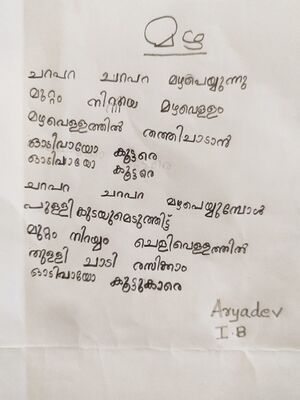 മഴ
ചറപറ ചറപറ മഴപെയ്യുന്നു
മുറ്റം നിറയെ മഴവെള്ളം
മഴവെള്ളത്തിൽ തത്തിചാടാൻ
ഓടിവായോ കൂട്ടരെ
ഓടിവായോ കൂട്ടരെ
ചറപറ ചറപറ മഴപെയ്യുമ്പോൾ
പുള്ളികുടയുമെടുത്തിട്ട്
മുറ്റം നിറയും ചെളിവെള്ളത്തിൽ
തുള്ളി ചാടി രസിക്കാം
ഓടിവായോ കൂട്ടുകാരെ
Aryadev
I.B